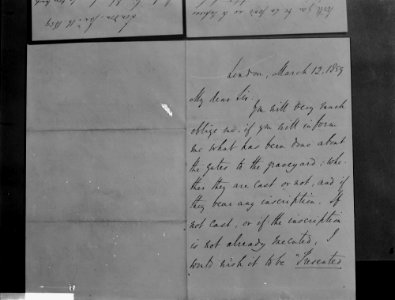 London, March 12. 1859
My dear Sir.
You will very much
oblige me, if you will inform
me what has been done about
the gates to the graveyard; whe-
ther they are cast or not, and if
they bear any inscription. If
not cast, or if the inscription
is not already executed, I
would wish it to be "Presented